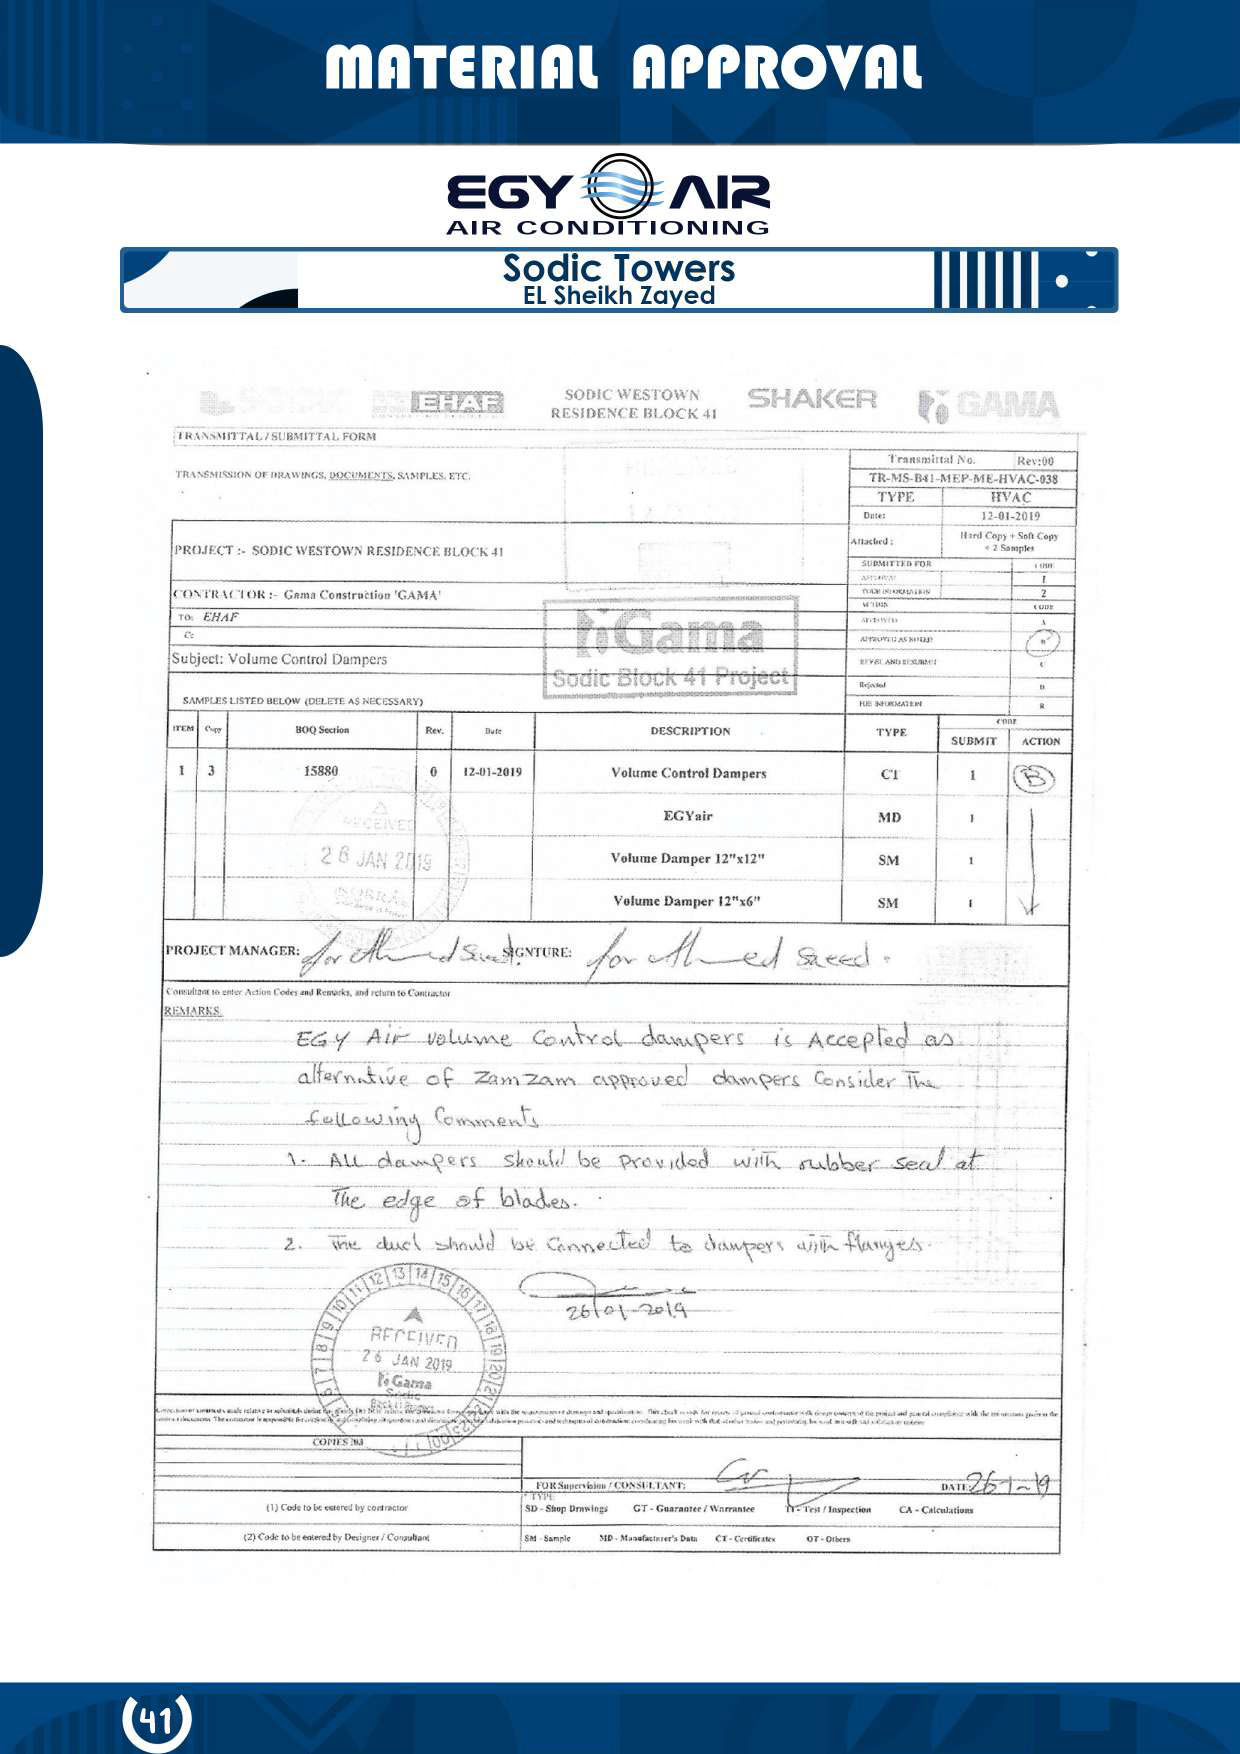 MATERIAL APPROVAL
EGY AIR
AIR CONDITIONING
Sodic Towers
EL Sheikh Zayed
EHAF
SODIC WESTOWN
RESIDENCE BLOCK 41
SHAKER
GAMA
TRANSMITTAL / SUBMITTAL FORM
TRANSMISSION OF DRAWINGS, DOCUMENTS, SAMPLES, ETC.
Transmittal No. Rev:00
TR-MS-B41-MEP-ME-HVAC-038
TYPE HVAC
Date: 12-01-2019
Attached : Hard Copy + Soft Copy
+ 2 Samples
PROJECT :- SODIC WESTOWN RESIDENCE BLOCK 41
SUBMITTED FOR CODE
APPROVAL 1
FOR INFORMATION 2
ACTION CODE
APPROVED A
APPROVED AS NOTED B
REVISE AND RESUBMIT C
Rejected D
FOR INFORMATION R
CONTRACTOR :- Gama Construction 'GAMA'
TO: EHAF
Cc
Subject: Volume Control Dampers
Gama
Sodic Block 41 Project
SAMPLES LISTED BELOW (DELETE AS NECESSARY)
ITEM Copy BOQ Section Rev. Date DESCRIPTION TYPE CODE
SUBMIT ACTION
1 3 15880 0 12-01-2019 Volume Control Dampers CT 1 B
EGYair MD 1
Volume Damper 12"x12" SM 1
Volume Damper 12"x6" SM 1
RECEIVED
26 JAN 2019
PROJECT MANAGER: for Ahmed Saeed SIGNTURE: for Ahmed Saeed.
Consultant to enter Action Codes and Remarks, and return to Contractor
REMARKS.
EGY Air volume Control dampers is Accepted as
alternative of Zamzam approved dampers Consider The
following Comments
1. All dampers should be provided with rubber seal at
The edge of blades.
2. The duct should be Connected to dampers with flanges.
26/01-2019
RECEIVED
26 JAN 2019
Gama
Sodic
Block 41 Project
COPIES
FOR Supervision / CONSULTANT: DATE: 26-1-19
* TYPE
(1) Code to be entered by contractor
SD - Shop Drawings GT - Guarantee / Warrantee TI - Test / Inspection CA - Calculations
(2) Code to be entered by Designer / Consultant
SM - Sample MD - Manufacturer's Data CT - Certificates OT - Others
41